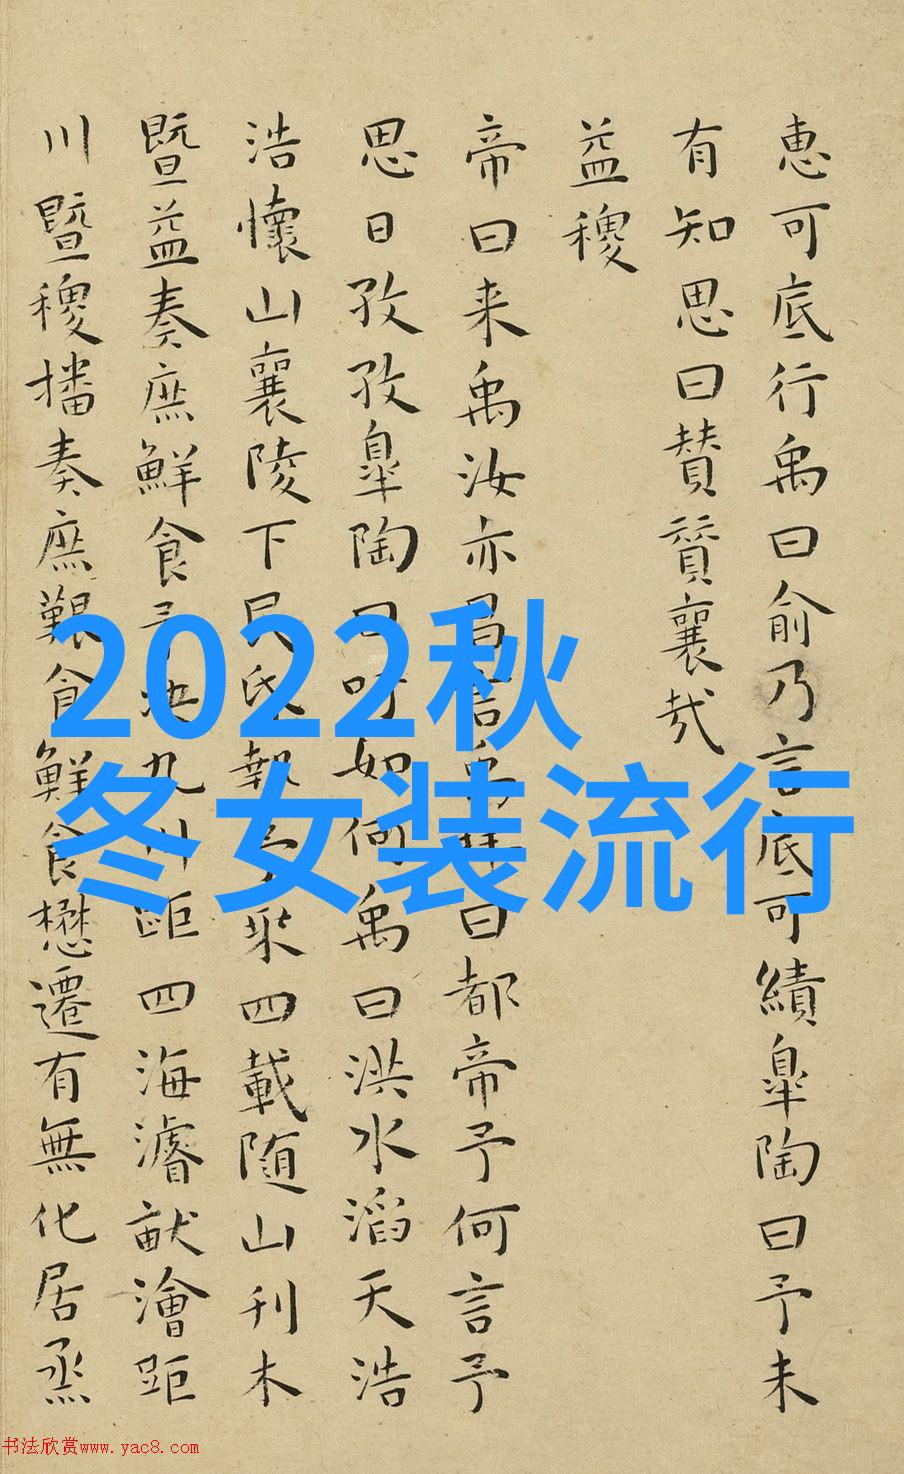 惠可底行禹曰俞乃言底可績皋陶曰予未
有知思曰賛賛襄哉
益稷
帝曰来禹汝亦昌言禹拜曰都帝予何言予
思日孜孜皋陶曰吁如何禹曰洪水滔天浩
浩懷山襄陵下民昏墊予乘四載随山刊木
暨益奏庶鮮食予決九川距四海濬畎澮距
川暨稷播奏庶艱食鮮食懋遷有無化居烝
2022秋
冬女装流行
书法欣赏www.yac8.com